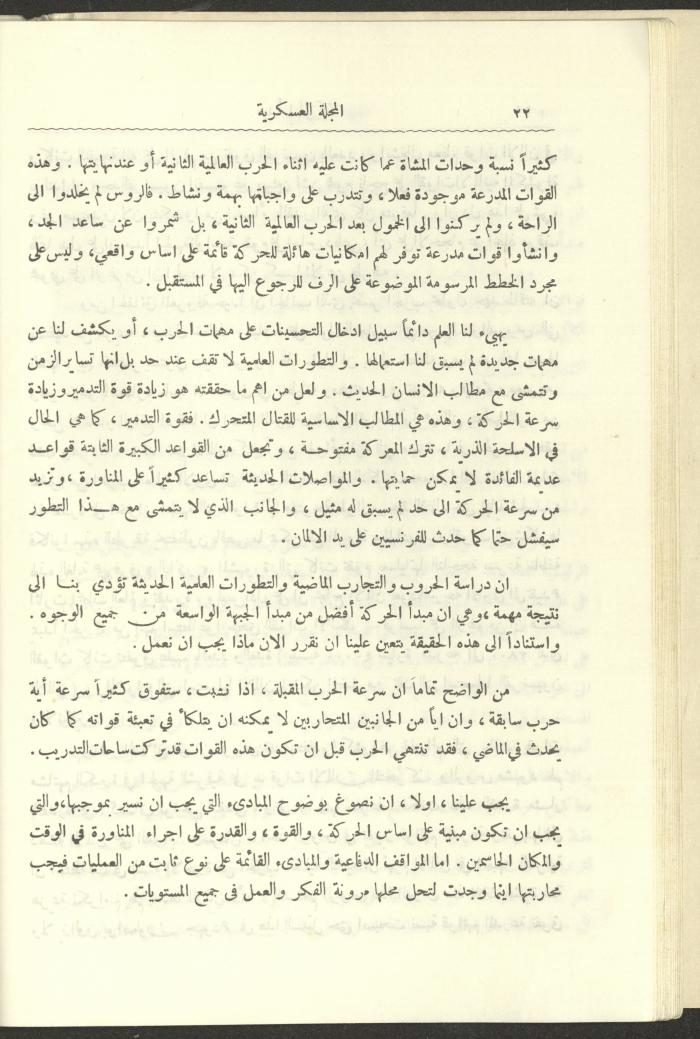 ٢٢ المجلة العسكرية
كثيراً نسبة وحدات المشاة عما كانت عليه اثناء الحرب العالمية الثانية أو عندنهايتها . وهذه
القوات المدرعة موجودة فعلا ، وتتدرب على واجباتها بهمة ونشاط . فالروس لم يخلدوا الى
الراحة ، ولم يركنوا الى الخمول بعد الحرب العالمية الثانية ، بل شمروا عن ساعد الجد ،
وانشأوا قوات مدرعة توفر لهم امكانيات هائلة للحركة قائمة على اساس واقعي، وليس على
مجرد الخطط المرسومة الموضوعة على الرف للرجوع اليها في المستقبل .
يهيىء لنا العلم دائماً سبيل ادخال التحسينات على مهمات الحرب ، أو يكشف لنا عن
مهمات جديدة لم يسبق لنا استعمالها . والتطورات العلمية لا تقف عند حد بل انها تساير الزمن
وتتمشى مع مطالب الانسان الحديث . ولعل من اهم ما حققته هو زيادة قوة التدمير وزيادة
سرعة الحركة ، وهذه هي المطالب الاساسية للقتال المتحرك . فقوة التدمير ، كما هي الحال
في الاسلحة الذرية ، تترك المعركة مفتوحــة ، وتجعل من القواعد الكبيرة الثابتة قواعــد
عديمة الفائدة لا يمكن حمايتها . والمواصلات الحديثة تساعد كثيراً على المناورة ، وتزيد
من سرعة الحركة الى حد لم يسبق له مثيل ، والجانب الذي لا يتمشى مع هــذا التطور
سيفشل حتما كما حدث للفرنسيين على يد الالمان .
ان دراسة الحروب والتجارب الماضية والتطورات العلمية الحديثة تؤدي بنــا الى
نتيجة مهمة ، وهي ان مبدأ الحركة أفضل من مبدأ الجبهة الواسعة من جميع الوجوه .
واستناداً الى هذه الحقيقة يتعين علينا ان نقرر الان ماذا يجب ان نعمل .
من الواضح تماماً ان سرعة الحرب المقبلة ، اذا نشبت ، ستفوق كثيراً سرعة أية
حرب سابقة ، وان اياً من الجانبين المتحاربين لا يمكنه ان يتلكأ في تعبئة قواته كما كان
يحدث في الماضي ، فقد تنتهي الحرب قبل ان تكون هذه القوات قد تركت ساحات التدريب.
يجب علينا ، اولا ، ان نصوغ بوضوح المبادىء التي يجب ان نسير بموجبها، والتي
يجب ان تكون مبنية على اساس الحركة ، والقوة ، والقدرة على اجراء المناورة في الوقت
والمكان الحاسمين . اما المواقف الدفاعية والمبادىء القائمة على نوع ثابت من العمليات فيجب
محاربتها اينما وجدت لتحل محلها مرونة الفكر والعمل في جميع المستويات .